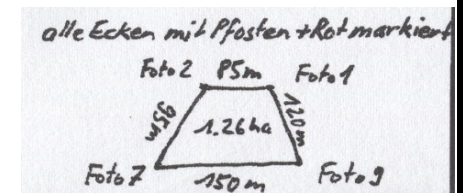 alle Ecken mit Pfosten + Rot markiert
Foto 2 85m Foto 1
95m 120m
1.26 ha
Foto 7 150 m Foto 9